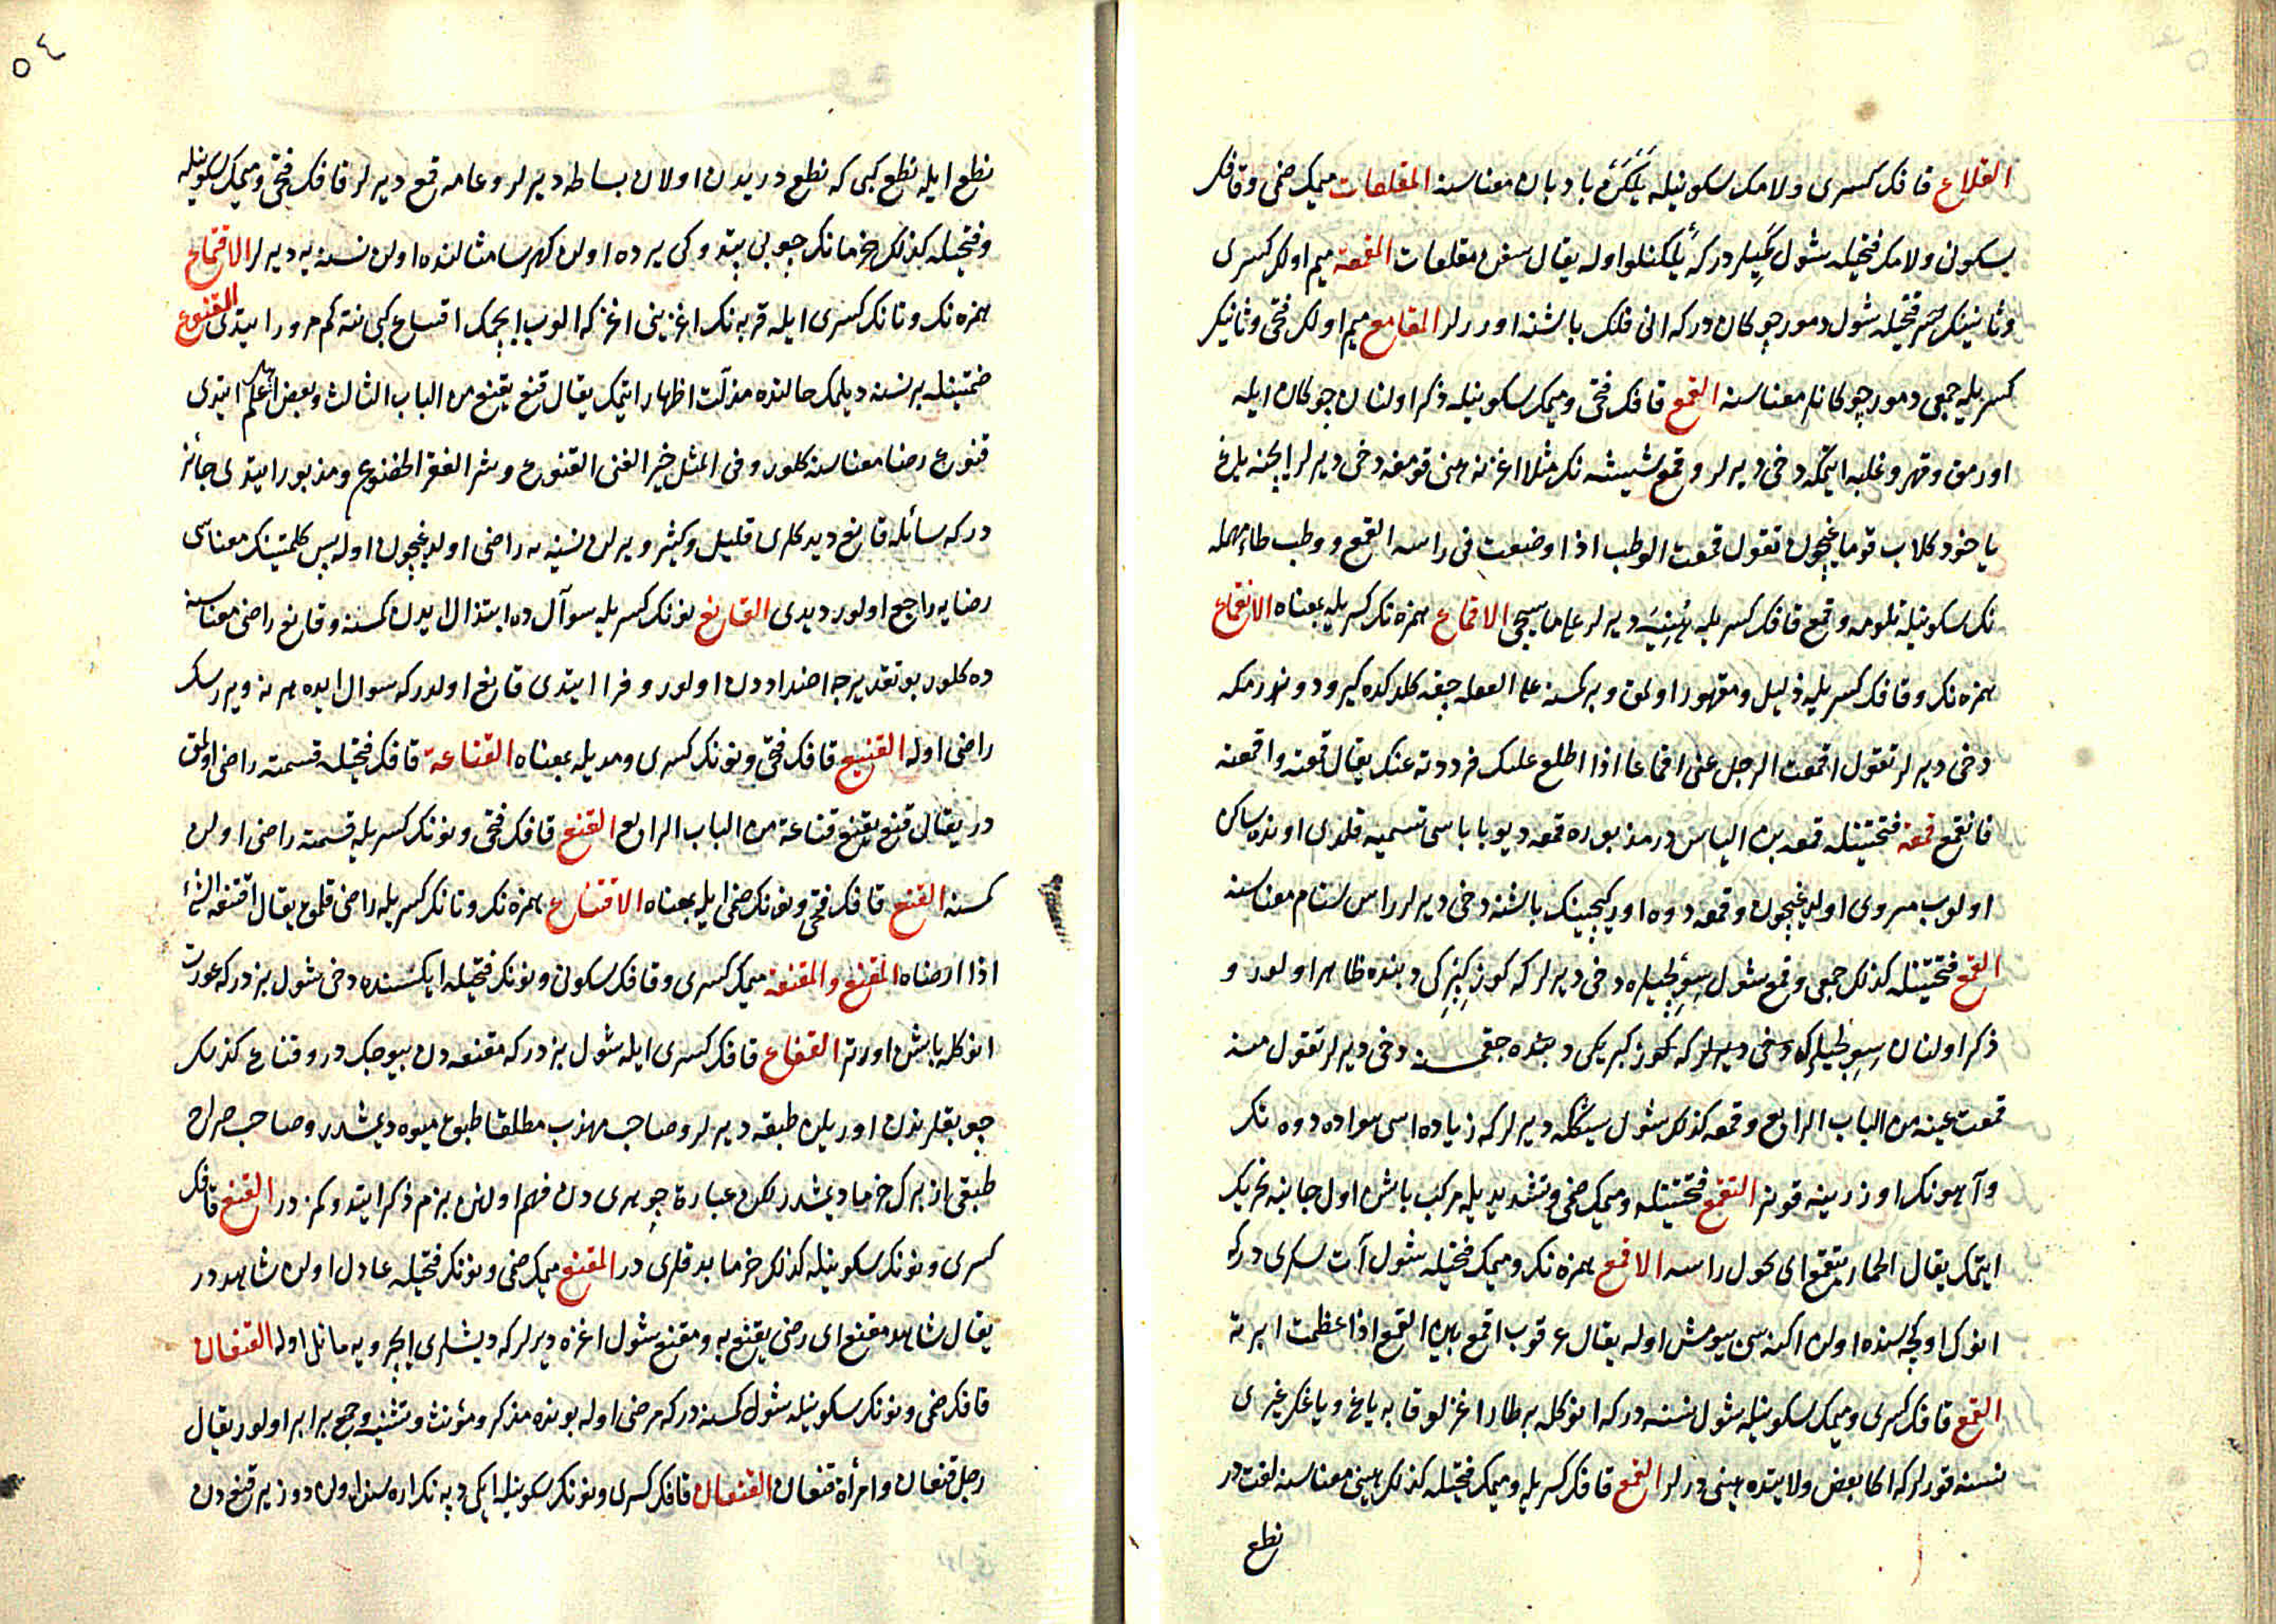 القلاع قافك كسرى ولامك سكونيله يلكن بادبان معناسنه المقلعات ميمك ضمى وقافك
سكونى ولامك فتحيله شول كميلر دركه يلكنلو اوله يقال سفن مقلعات المقمعة ميم اولك كسرى
وثانينك فتحيله شول دمور چوكان دركه انى فلك باشنه اوررلر المقامع ميم اولك فتحى وثانينك
كسريله جمعى دمور چوكانلر معناسنه القمع قافك فتحى وميمك سكونيله ذكر اولنان چوكان ايله
اورمق وقهر وغلبه ايتمكه دخى ديرلر وقمع شيشه نك مثلا اغزنه هنى قومغه دخى ديرلر ايچنه ياغ
يا خود كلاب قوماغيچون تقول قمعت الوطب اذا وضعت فى راسه القمع ووطب طاء مهمله
نك سكونيله تلومه وقمع قافك كسريله ديرلر على ما سيجى الاقماع همزه نك كسريله بمعناه الانقماع
همزه نك وقافك كسريله ذليل ومقهور اولمق وبر كمسنه على الغفله چقه كلدكده كيرو دوندرمكه
دخى ديرلر تقول اقمعت الرجل عنى اقماعا اذا اطلع عليك فرددته عنك يقال قمعته واقمعته
فانقمع قمعة فتحتينله قمعه بن الياس در مذبوره قمعه ديو باباسى تسميه قلندى اونده ساكن
اولوب مروى اولديغيچون وقمعه دوه اوركجينك باشنه دخى ديرلر راس سنام معناسنه
القمع فتحتينله كذلك جمعى وقمع شول سوبلجيلره دخى ديرلر كه كوز كبرى دبنده ظاهر اولور و
ذكر اولنان سوبلجيلر كه دخى ديرلر كه كوز كبريكى دبنده چقمسنه دخى ديرلر تقول منه
قمعت عينه من الباب الرابع وقمعه كذلك شول سينكله ديرلر كه زياده اسى هواده دوه نك
وآهونك اوزرينه قونر التقمع فتحتينله وميمك ضمى وتشديديله مركب باشن اول جانبه تحريك
ايتمك يقال الحمار يتقمع اى يحول راسه الاقمع همزه نك وميمك فتحيله شول آت سكرى دركه
انوك اوكچه سنده اولان اكنه سى سيومش اوله يقال عرقوب اقمع بين القمع اذا عظمت ابرته
القمع قافك كسرى وميمك سكونيله شول نسنه دركه انوكله بر طار اغزلو قابه ياغ وياغك غيرى
نسنه قورلر كه اكا بعض ولايتده هينى ديرلر القمع قافك كسريله وميمك فتحيله كذلك هينى معناسنه لغت در
نطع
٥٤
نطع ايله نطع كبى كه نطع دريدن اولان بساطه ديرلر وعامه قمع ديرلر قافك فتحى وميمك سكونيله
وفتحيله كذلك خرمانك چوبى بيتدوكى يرده اولان كهرسا مثالنده اولان نسنه يه ديرلر الاقتماع
همزه نك وتانك كسرى ايله قربه نك اغزينى اغزكه الوب ايچمك اقتباع كبى نته كم مرور ايتدى القنوع
ضمتينله بر نسنه ديلمك حالنده مذلت اظهار ايتمك يقال قنع يقنع من الباب الثالث وبعض اهل علم ايتدى
قنوع رضا معناسنه كلور وفى المثل خير الغنى القنوع وشر الفقر الخضوع ومذبور ايتدى جائز
در كه سائله قانع ديدكلرى قليل وكثير ويرلن نسنه يه راضى اولديغيچون اوله پس كلمتينك معناسى
رضايه راجع اولور ديدى القانع نونك كسريله سوآل ده ابتذال ايدن كمسنه وقانع راضى معناسنه
ده كلور بو تقديرجه اضداددن اولور وفرا ايتدى قانع اولدركه سوال ايده هر نه ويررسك
راضى اوله القنيع قافك فتحى ونونك كسرى ومديله بمعناه القناعة قافك فتحيله قسمته راضى اولمق
در يقال قنع يقنع قناعة من الباب الرابع القنع قافك فتحى ونونك كسريله قسمته راضى اولان
كمسنه القنع قافك فتحى ونونك ضمى ايله بمعناه الاقتناع همزه نك وتانك كسريله راضى قلمق يقال اقنعه الشئ
اذا ارضاه المقنع والمقنعة ميمك كسرى وقافك سكونى ونونك فتحيله ايكسنده دخى شول بزدركه عورت
انوكله باشن اورتر القناع قافك كسرى ايله شول بزدركه مقنعه دن بيوجك در وقناع كذلك
چوبقلرندن اوريلن طبقه ديرلر وصاحب مهذب مطلقا طبق ميوه ديمشدر وصاحب صراح
طبقى از برك خرما ديمشدر لكن عبارة جوهرى دن فهم اولنن بزم ذكر ايتدوكمزدر القنع قافك
كسرى ونونك سكونيله كذلك خرما بدقلرى در المقنع ميمك ضمى ونونك فتحيله عادل اولان شاهددر
يقال شاهد مقنع اى رضى يقنع به ومقنع شول اغزه ديرلر كه ديشلرى ايچرويه مائل اوله القنعان
قافك ضمى ونونك سكونيله شول كمسنه دركه مرضى اوله بونده مذكر ومؤنث وتثنيه وجمع برابر اولور يقال
رجل قنعان وامرأة قنعان القنعان قافك كسرى ونونك سكونيله ايكى دپه نك اراسنده اولان دوز ير قنع دن